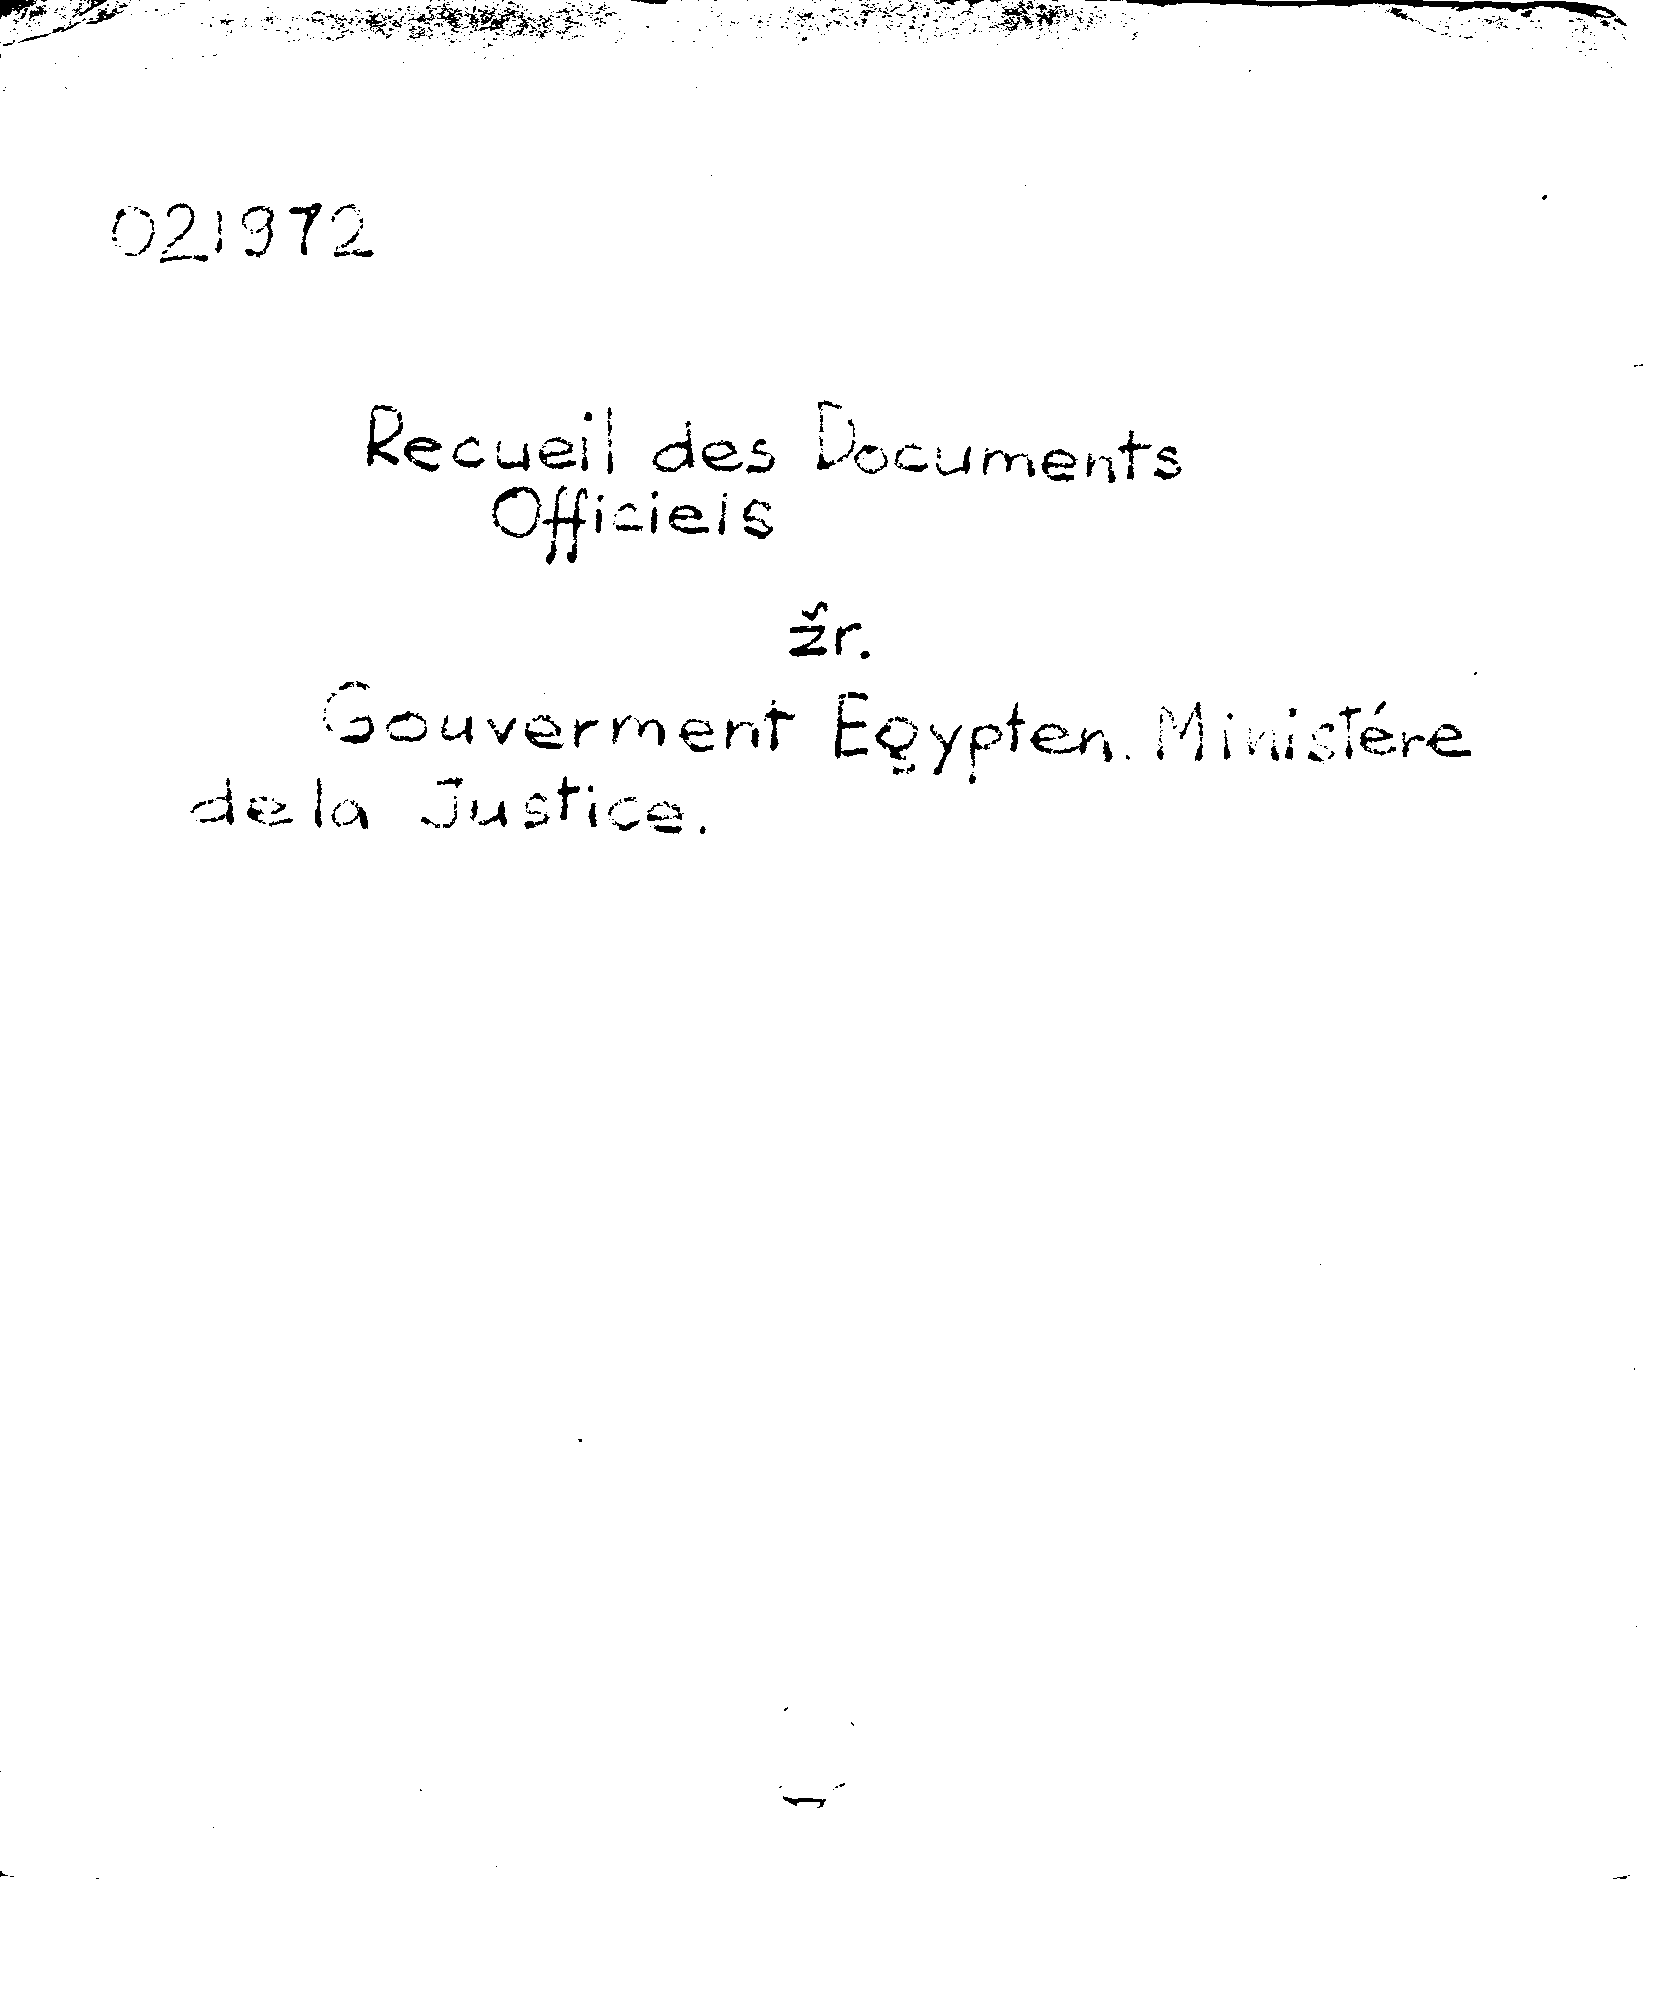 021972
Recueil des Documents
Officiels
žr.
Gouverment Egypten. Ministére
de la Justice.